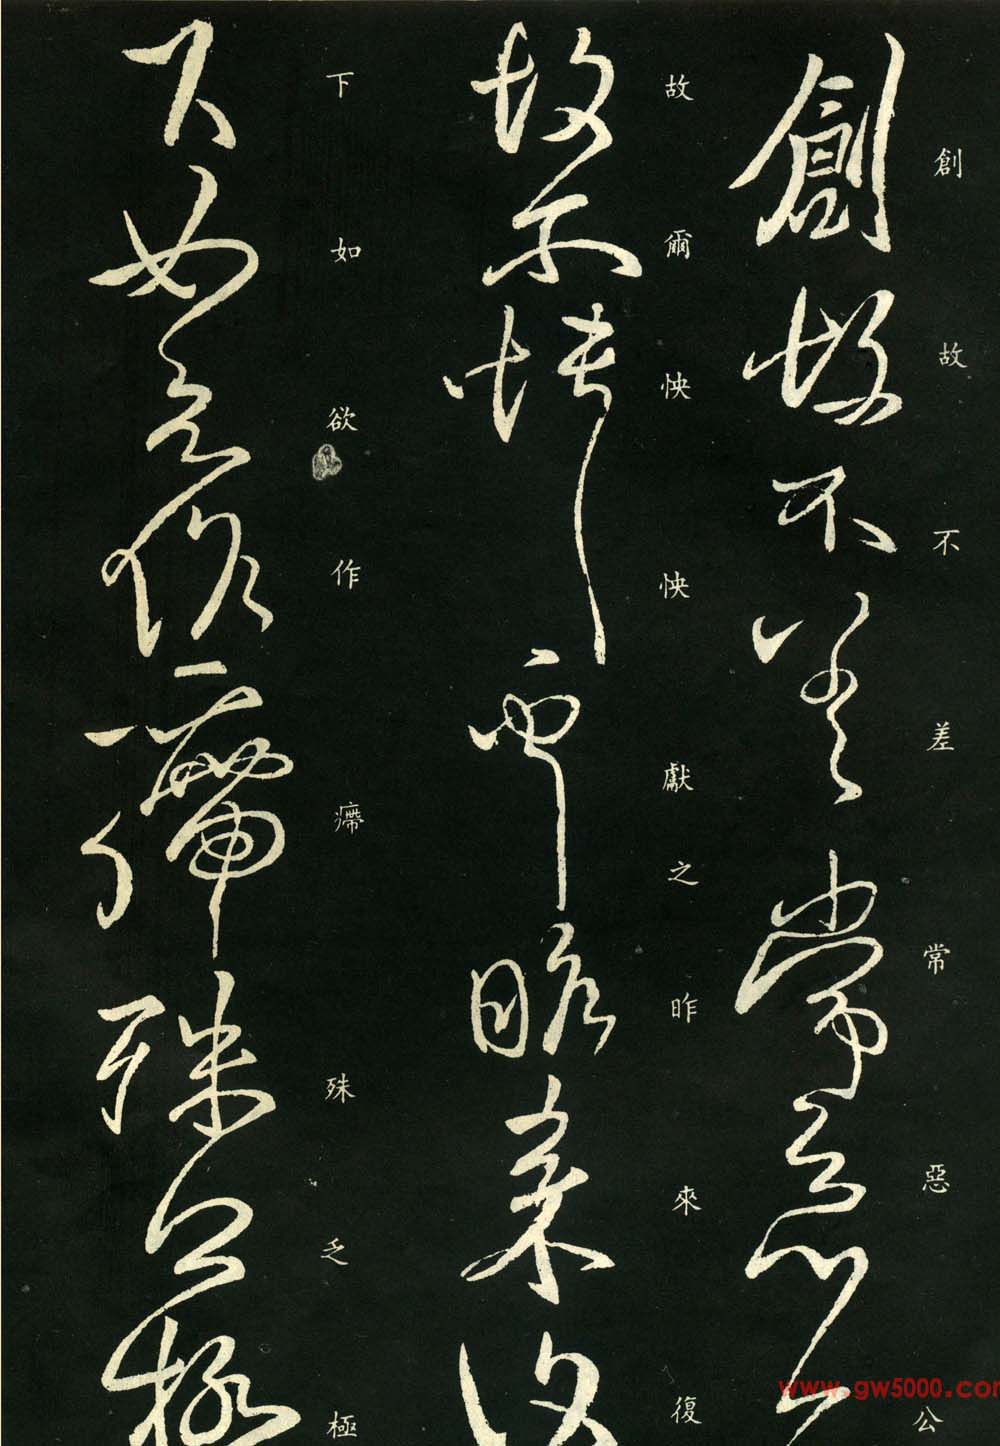 創故不差常惡公
故爾怏怏獻之昨來復
下如欲作㿃殊乏極
www.gw5000.com